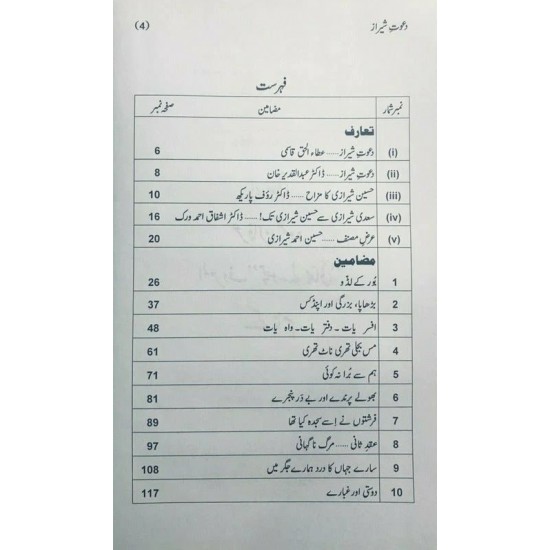 دعوتِ شیراز (4)
فہرست
نمبر شمار مضامین صفحہ نمبر
تعارف
(i) دعوتِ شیراز ...... عطاء الحق قاسمی 6
(ii) دعوتِ شیراز ...... ڈاکٹر عبدالقدیر خان 8
(iii) حسین شیرازی کا مزاح ...... ڈاکٹر رؤف پاریکھ 10
(iv) سعدی شیرازی سے حسین شیرازی تک! ...... ڈاکٹر اشفاق احمد ورک 16
(v) عرضِ مصنف ...... حسین احمد شیرازی 20
مضامین
1 بُور کے لڈو 26
2 بڑھاپا، بزرگی اور اپنڈکس 37
3 افسریات ۔ دفتریات۔ واہ یات 48
4 مس بجلی تھری ناٹ تھری 61
5 ہم سے بُرا نہ کوئی 71
6 بھولے پرندے اور بے دَر پنجرے 81
7 فرشتوں نے اِسے سجدہ کیا تھا 89
8 عقدِ ثانی ...... مرگِ ناگہانی 97
9 سارے جہاں کا درد ہمارے جگر میں 108
10 دوستی اور غبارے 117